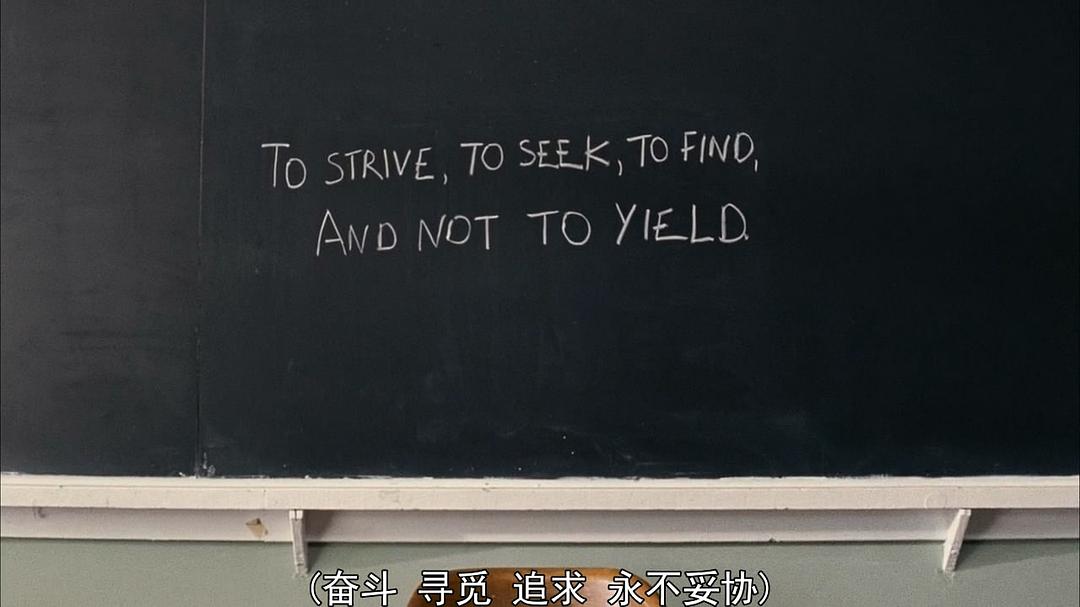 TO STRIVE, TO SEEK, TO FIND,
AND NOT TO YIELD.
(奋斗 寻觅 追求 永不妥协)